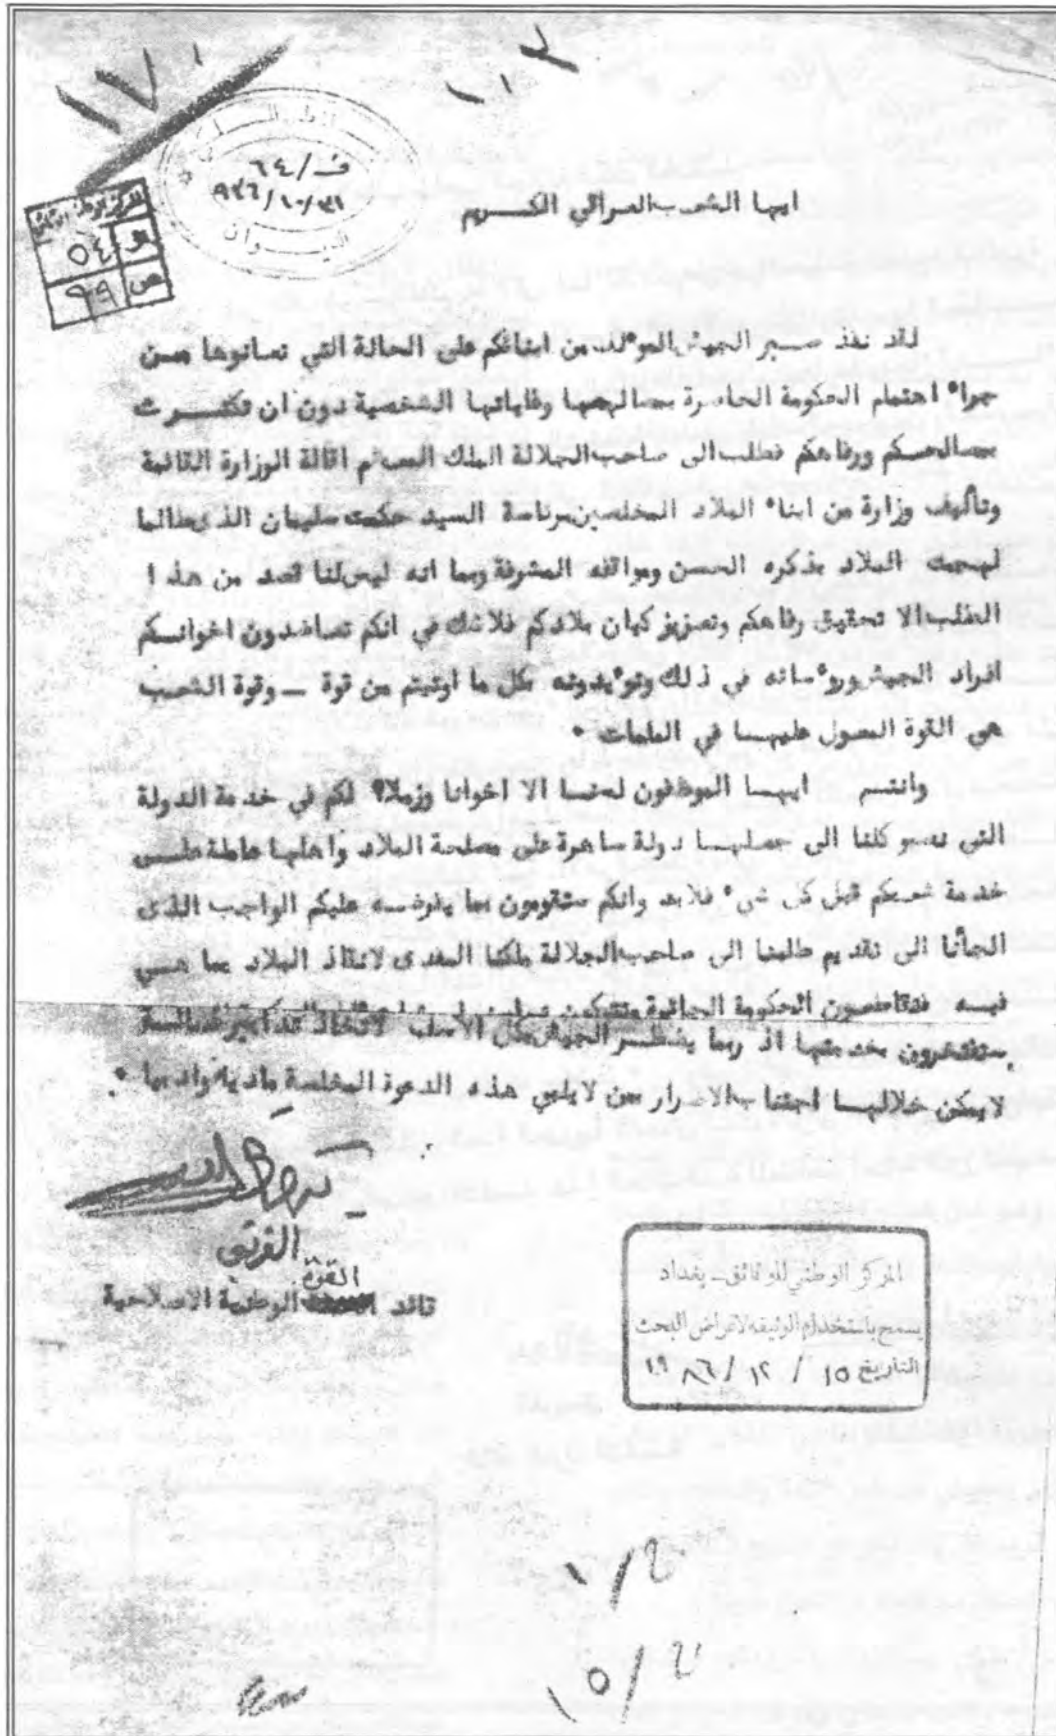 ١٧٠
ف/٦٤
٩٣٦/١٠/٣١
الديوان
و ٥٤
ص ٩٩
ايها الشعب العراقي الكريم
لقد نفذ صبر الجيش المؤلف من ابنائكم على الحالة التي تعانوها من
جراء اهتمام الحكومة الحاضرة بمصالحها وغاياتها الشخصية دون ان تكترث
بمصالحكم ورفاهكم فطلب الى صاحب الجلالة الملك المعظم اقالة الوزارة القائمة
وتأليف وزارة من ابناء البلاد المخلصين برئاسة السيد حكمت سليمان الذي طالما
لهجت البلاد بذكره الحسن ومواقفه المشرفة وبما انه ليس لنا قصد من هذا
الطلب الا تحقيق رفاهكم وتعزيز كيان بلادكم فلاشك في انكم تعاضدون اخوانكم
افراد الجيش ورؤسائه في ذلك وتؤيدونه بكل ما اوتيتم من قوة ــ وقوة الشعب
هي القوة المعول عليها في الملمات ٠
وانتم ايها الموظفون لسنا الا اخوانا وزملاء لكم في خدمة الدولة
التي نصبو كلنا الى جعلها دولة ساهرة على مصلحة البلاد واهلها عاملة على
خدمة شعبكم قبل كل شيء فلابد وانكم ستقومون بما يفرضه عليكم الواجب الذى
الجأنا الى تقديم طلبنا الى صاحب الجلالة ملكنا المفدى لانقاذ البلاد مما هي
فيه فتقاطعون الحكومة الجائرة وتتركون
ستفتخرون بخدمتها اذ ربما يضطر الجيش بكل الاسف لاتخاذ تدابير فعالة
لايمكن خلالها اجتناب الاضرار بمن لايلبي هذه الدعوة المخلصة ماديا وادبيا ٠
الفريق
القوة
قائد الوطنية الاصلاحية
المركز الوطني للوثائق ــ بغداد
يسمح باستخدام الوثيقة لاغراض البحث
التاريخ ١٥ / ١٢ / ١٩٨٦